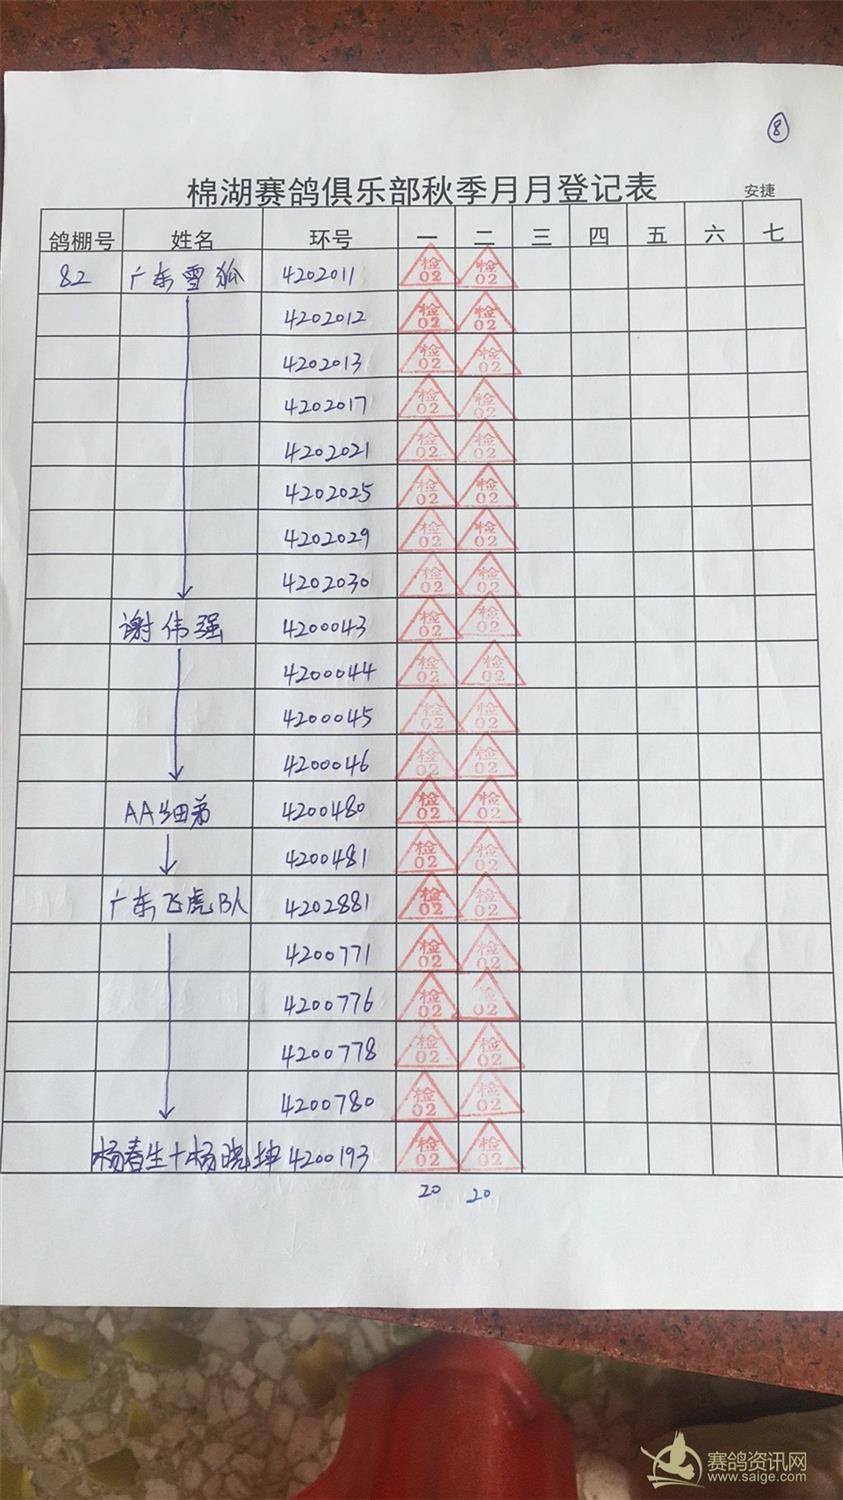 8
棉湖赛鸽俱乐部秋季月月登记表
安捷
鸽棚号 姓名 环号 一 二 三 四 五 六 七
82 广东雪狐 4202011 检02 检02
4202012 检02 检02
4202013 检02 检02
4202017 检02 检02
4202021 检02 检02
4202025 检02 检02
4202029 检02 检02
4202030 检02 检02
谢伟强 4200043 检02 检02
4200044 检02 检02
4200045 检02 检02
4200046 检02 检02
AA细弟 4200480 检02 检02
4200481 检02 检02
广东飞虎B队 4202881 检02 检02
4200771 检02 检02
4200776 检02 检02
4200778 检02 检02
4200780 检02 检02
杨春生+杨晓坤 4200193 检02 检02
20 20
赛鸽资讯网
www.saige.com